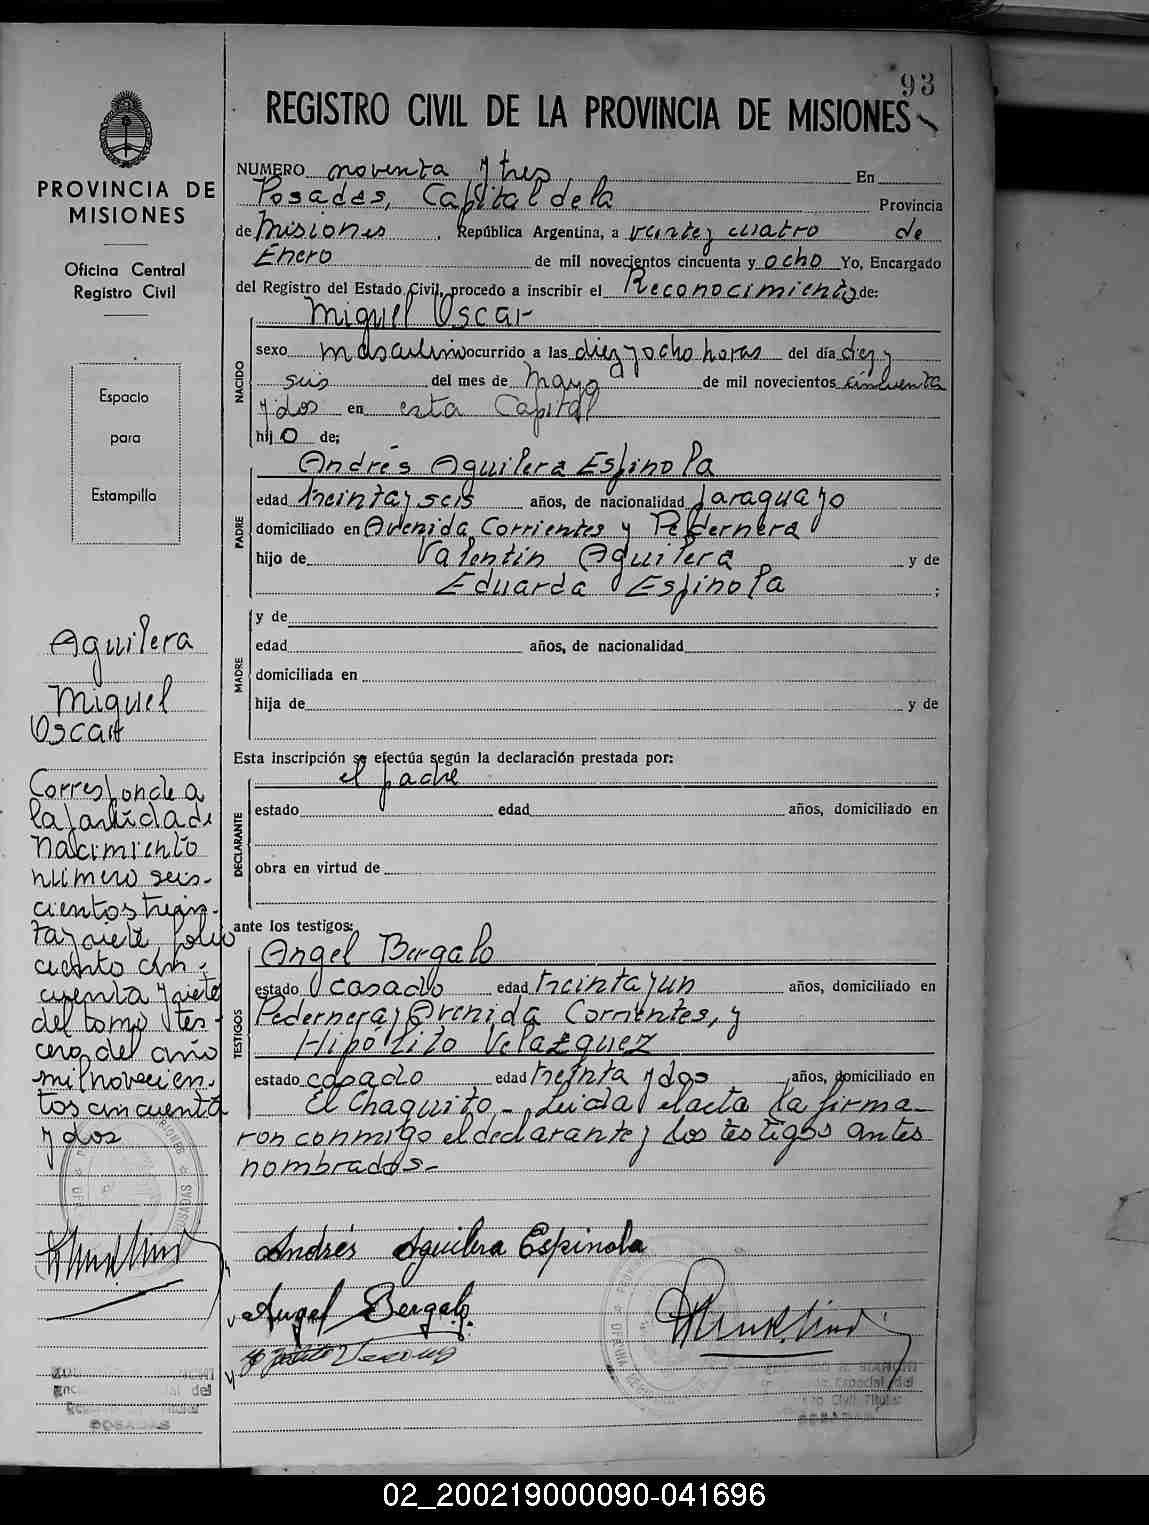 93
REGISTRO CIVIL DE LA PROVINCIA DE MISIONES
NUMERO noventa y tres En
Posadas, Capital de la Provincia
de Misiones, República Argentina, a veinte y cuatro de
Enero de mil novecientos cincuenta y ocho Yo, Encargado
del Registro del Estado Civil, procedo a inscribir el Reconocimiento de:
NACIDO
Miguel Oscar
sexo masculino ocurrido a las diez y ocho horas del día diez y
seis del mes de Mayo de mil novecientos cincuenta
y dos en esta Capital
hijo de;
PADRE
Andrés Aguilera Espinola
edad treinta y seis años, de nacionalidad paraguayo
domiciliado en Avenida Corrientes y Pedernera
hijo de Valentin Aguilera y de
Eduarda Espinola ;
MADRE
y de
edad años, de nacionalidad
domiciliada en
hija de y de
Esta inscripción se efectúa según la declaración prestada por:
el padre
DECLARANTE
estado edad años, domiciliado en
obra en virtud de
ante los testigos:
TESTIGOS
Angel Bergalo
estado casado edad treinta y un años, domiciliado en
Pedernera y Avenida Corrientes, y
Hipólito Velazquez
estado casado edad treinta y dos años, domiciliado en
El Chaquito - Leida el acta la firma-
ron conmigo el declarante y los testigos antes
nombrados.-
Andrés Aguilera Espinola
Angel Bergalo
PROVINCIA DE
MISIONES
Oficina Central
Registro Civil
Espacio
para
Estampilla
Aguilera
Miguel
Oscar
Corresponde a
la partida de
nacimiento
número seis-
cientos trein-
ta y siete, folio
ciento cin-
cuenta y siete
del tomo ter-
cero del año
mil novecien-
tos cincuenta
y dos
POSADAS
02_200219000090-041696